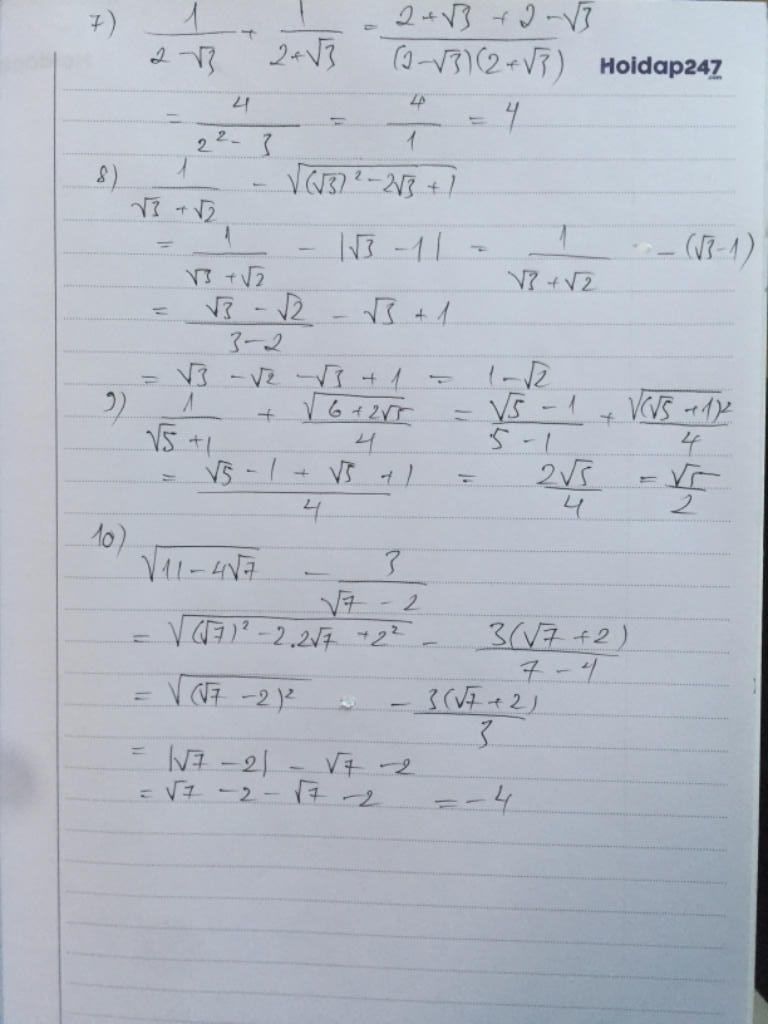 7) 1/(2-√3) + 1/(2+√3) = (2+√3+2-√3)/((2-√3)(2+√3))
Hoidap247.com
= 4/(2²-3) = 4/1 = 4
8) 1/(√3+√2) - √((√3)²-2√3+1)
= 1/(√3+√2) - |√3-1| = 1/(√3+√2) - (√3-1)
= (√3-√2)/(3-2) - √3 + 1
= √3 - √2 - √3 + 1 = 1-√2
9) 1/(√5+1) + √(6+2√5)/4 = (√5-1)/(5-1) + √((√5+1)²)/4
= (√5-1+√5+1)/4 = 2√5/4 = √5/2
10) √(11-4√7) - 3/(√7-2)
= √((√7)²-2.2√7+2²) - 3(√7+2)/(7-4)
= √((√7-2)²) - 3(√7+2)/3
= |√7-2| - √7 - 2
= √7 - 2 - √7 - 2 = -4